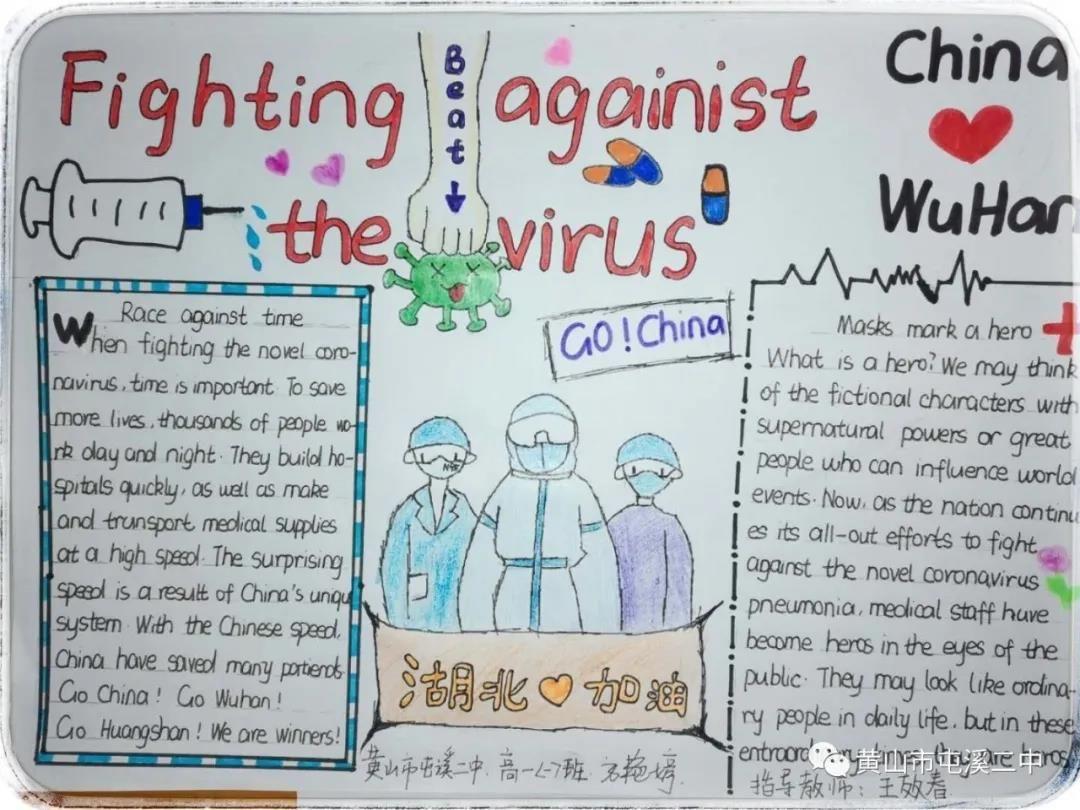 Fighting againist
the virus
Beat
China
WuHan
GO!China
Race against time
When fighting the novel coro-
navirus, time is important. To save
more lives, thousands of people wo-
rk day and night. They build ho-
spitals quickly, as well as make
and transport medical supplies
at a high speed. The surprising
speed is a result of China's unqu
system. With the Chinese speed,
China have saved many partients.
Go China! Go Wuhan!
Go Huangshan! We are winners!
湖北 加油
Masks mark a hero
What is a hero? We may think
of the fictional characters with
supernatural powers or great
people who can influence world
events. Now, as the nation continu
es its all-out efforts to fight
against the novel coronavirus
pneumonia, medical staff have
become heros in the eyes of the
public. They may look like ordina-
ry people in daily life, but in these
are heros
黄山市屯溪二中 高一
指导教师: 王效春
黄山市屯溪二中